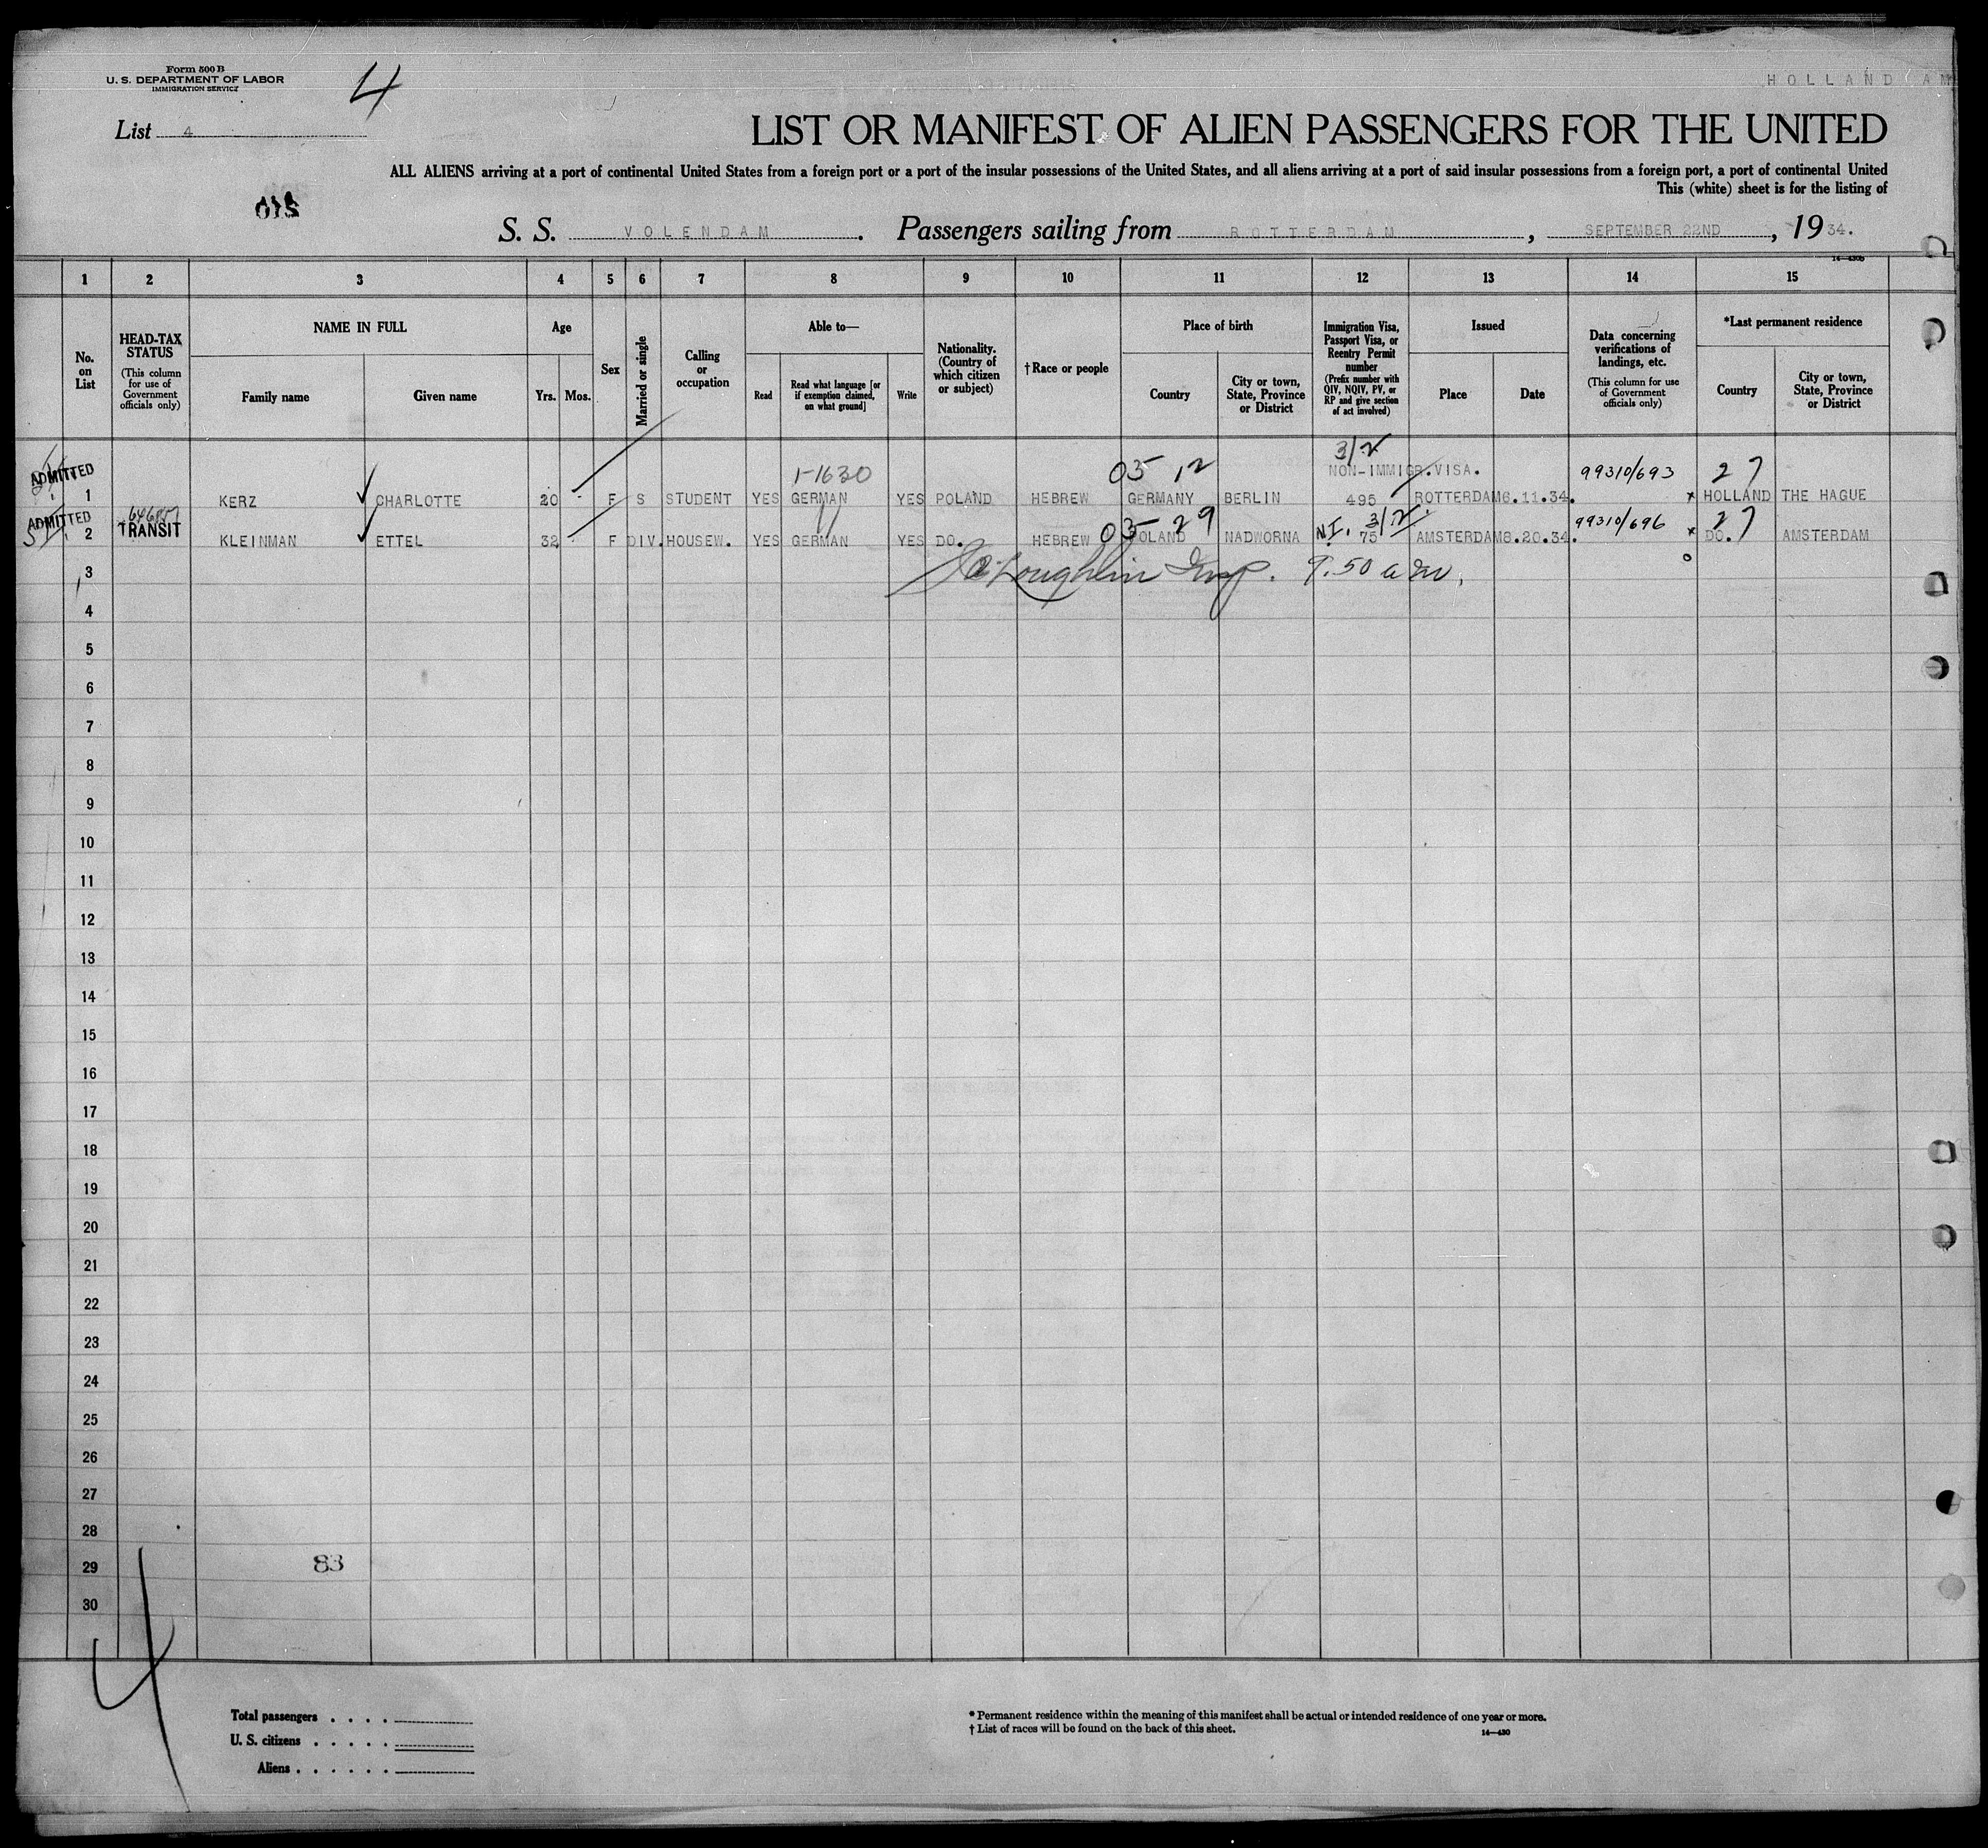 Form 500 B
U. S. DEPARTMENT OF LABOR
IMMIGRATION SERVICE
4
HOLLAND AM
List 4
LIST OR MANIFEST OF ALIEN PASSENGERS FOR THE UNITED
ALL ALIENS arriving at a port of continental United States from a foreign port or a port of the insular possessions of the United States, and all aliens arriving at a port of said insular possessions from a foreign port, a port of continental United
This (white) sheet is for the listing of
S. S. VOLENDAM. Passengers sailing from ROTTERDAM, SEPTEMBER 22ND, 1934.
1 2 3 4 5 6 7 8 9 10 11 12 13 14 15
No. on List
HEAD-TAX STATUS
(This column for use of Government officials only)
NAME IN FULL
Family name
Given name
Age
Yrs. Mos.
Sex
Married or single
Calling or occupation
Able to—
Read
Read what language [or if exemption claimed, on what ground]
Write
Nationality. (Country of which citizen or subject)
† Race or people
Place of birth
Country
City or town, State, Province or District
Immigration Visa, Passport Visa, or Reentry Permit number
(Prefix number with QIV, NQIV, PV, or RP and give section of act involved)
Issued
Place
Date
Data concerning verifications of landings, etc.
(This column for use of Government officials only)
*Last permanent residence
Country
City or town, State, Province or District
3/2
ADMITTED 1-1630 05 12 NON-IMMIGR.VISA. 99310/693 27
1 KERZ CHARLOTTE 20 - F S STUDENT YES GERMAN YES POLAND HEBREW GERMANY BERLIN 495 ROTTERDAM 6.11.34. x HOLLAND THE HAGUE
ADMITTED 05 29 N.I. 3/2 99310/696 27
2 TRANSIT KLEINMAN ETTEL 32 F DIV. HOUSEW. YES GERMAN YES DO. HEBREW POLAND NADWORNA 75 AMSTERDAM 8.20.34. x DO. AMSTERDAM
3 Insp. 9.50 a m.
4
5
6
7
8
9
10
11
12
13
14
15
16
17
18
19
20
21
22
23
24
25
26
27
28
29 83
30
4
Total passengers . . . .
U. S. citizens . . . . .
Aliens . . . . . .
* Permanent residence within the meaning of this manifest shall be actual or intended residence of one year or more.
† List of races will be found on the back of this sheet.
14—430